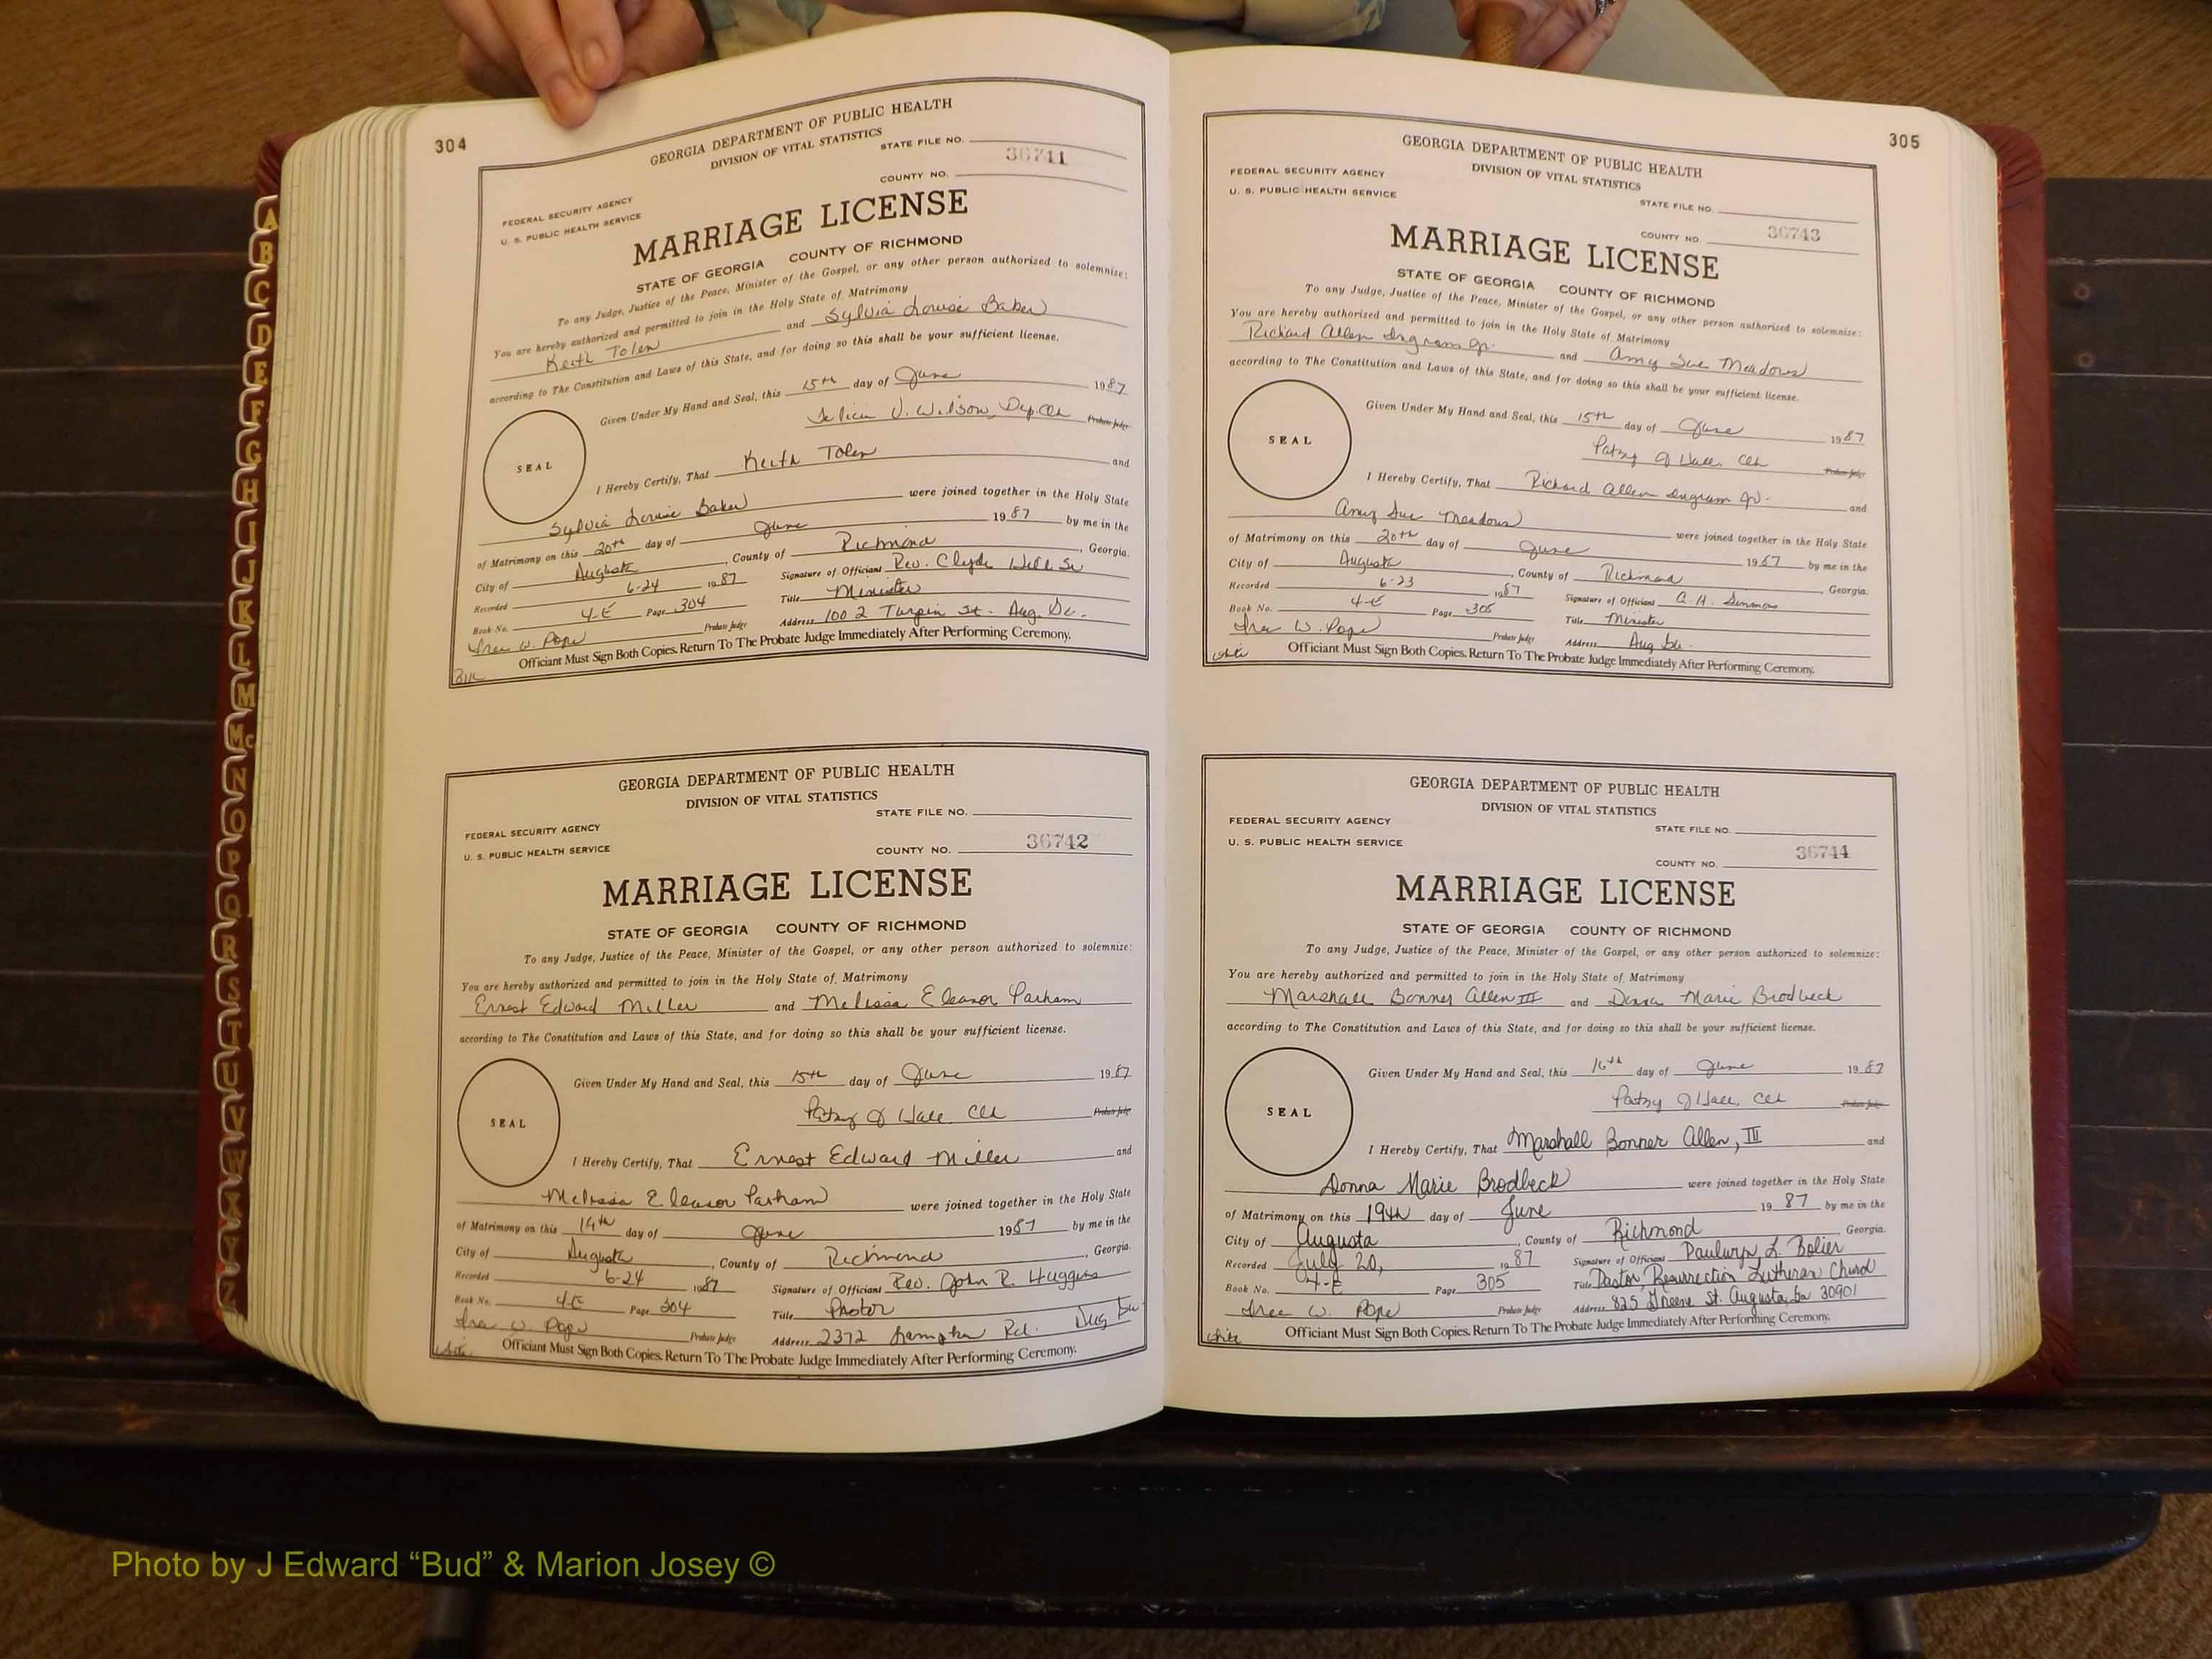 304
GEORGIA DEPARTMENT OF PUBLIC HEALTH
DIVISION OF VITAL STATISTICS
STATE FILE NO.
36741
COUNTY NO.
FEDERAL SECURITY AGENCY
U. S. PUBLIC HEALTH SERVICE
MARRIAGE LICENSE
STATE OF GEORGIA COUNTY OF RICHMOND
To any Judge, Justice of the Peace, Minister of the Gospel, or any other person authorized to solemnize:
You are hereby authorized and permitted to join in the Holy State of Matrimony
Keith Tolen and Sylvia Louise Baker
according to The Constitution and Laws of this State, and for doing so this shall be your sufficient license.
Given Under My Hand and Seal, this 15th day of June 1987
Felicia V. Wilson, Dep. Clk Probate Judge
SEAL
I Hereby Certify, That Keith Tolen and
Sylvia Louise Baker were joined together in the Holy State
of Matrimony on this 20th day of June 1987 by me in the
City of Augusta, County of Richmond, Georgia.
Recorded 6-24 1987 Signature of Officiant Rev. Clyde Hill Sr
Book No. 4-E Page 304 Title Minister
Probate Judge Address 1002 Turpin St. Aug. Ga.
W. Pope
Officiant Must Sign Both Copies. Return To The Probate Judge Immediately After Performing Ceremony.
GEORGIA DEPARTMENT OF PUBLIC HEALTH
DIVISION OF VITAL STATISTICS
STATE FILE NO.
FEDERAL SECURITY AGENCY
U. S. PUBLIC HEALTH SERVICE
COUNTY NO. 36742
MARRIAGE LICENSE
STATE OF GEORGIA COUNTY OF RICHMOND
To any Judge, Justice of the Peace, Minister of the Gospel, or any other person authorized to solemnize:
You are hereby authorized and permitted to join in the Holy State of Matrimony
Ernest Edward Miller and Melissa Eleanor Parham
according to The Constitution and Laws of this State, and for doing so this shall be your sufficient license.
Given Under My Hand and Seal, this 15th day of June 1987
Patsy J Hall, Clk Probate Judge
SEAL
I Hereby Certify, That Ernest Edward Miller and
Melissa Eleanor Parham were joined together in the Holy State
of Matrimony on this 19th day of June 1987 by me in the
City of Augusta, County of Richmond, Georgia.
Recorded 6-24 1987 Signature of Officiant Rev. John R. Huggins
Book No. 4-E Page 304 Title Pastor
W. Pope Probate Judge Address 2372 Rd. Aug Ga
White
Officiant Must Sign Both Copies. Return To The Probate Judge Immediately After Performing Ceremony.
305
GEORGIA DEPARTMENT OF PUBLIC HEALTH
DIVISION OF VITAL STATISTICS
FEDERAL SECURITY AGENCY
U. S. PUBLIC HEALTH SERVICE
STATE FILE NO.
COUNTY NO. 36743
MARRIAGE LICENSE
STATE OF GEORGIA COUNTY OF RICHMOND
To any Judge, Justice of the Peace, Minister of the Gospel, or any other person authorized to solemnize:
You are hereby authorized and permitted to join in the Holy State of Matrimony
Richard Allen Ingram Jr. and Amy Sue Meadows
according to The Constitution and Laws of this State, and for doing so this shall be your sufficient license.
Given Under My Hand and Seal, this 15th day of June 1987
Patsy J Hall, Clk Probate Judge
SEAL
I Hereby Certify, That Richard Allen Ingram Jr. and
Amy Sue Meadows were joined together in the Holy State
of Matrimony on this 20th day of June 1987 by me in the
City of Augusta, County of Richmond, Georgia.
Recorded 6-23 1987 Signature of Officiant A. H. Simmons
Book No. 4-E Page 305 Title Minister
W. Pope Probate Judge Address Aug Ga.
White
Officiant Must Sign Both Copies. Return To The Probate Judge Immediately After Performing Ceremony.
GEORGIA DEPARTMENT OF PUBLIC HEALTH
DIVISION OF VITAL STATISTICS
FEDERAL SECURITY AGENCY
STATE FILE NO.
U. S. PUBLIC HEALTH SERVICE
COUNTY NO. 36744
MARRIAGE LICENSE
STATE OF GEORGIA COUNTY OF RICHMOND
To any Judge, Justice of the Peace, Minister of the Gospel, or any other person authorized to solemnize:
You are hereby authorized and permitted to join in the Holy State of Matrimony
Marshall Bonner Allen III and Donna Marie Brodbeck
according to The Constitution and Laws of this State, and for doing so this shall be your sufficient license.
Given Under My Hand and Seal, this 16th day of June 1987
Patsy J Hall, Clk Probate Judge
SEAL
I Hereby Certify, That Marshall Bonner Allen, III and
Donna Marie Brodbeck were joined together in the Holy State
of Matrimony on this 19th day of June 1987 by me in the
City of Augusta, County of Richmond Georgia.
Recorded July 20, 1987 Signature of Officiant Paulwyn L. Bolier
Book No. 4-E Page 305 Title Pastor, Resurrection Lutheran Church
W. Pope Probate Judge Address 825 Greene St. Augusta, Ga 30901
White
Officiant Must Sign Both Copies. Return To The Probate Judge Immediately After Performing Ceremony.
A
B
C
D
E
F
G
H
I
J
K
L
M
Mc
N
O
P
Q
R
S
T
U
V
W
X
Y
Z
Photo by J Edward “Bud” & Marion Josey ©